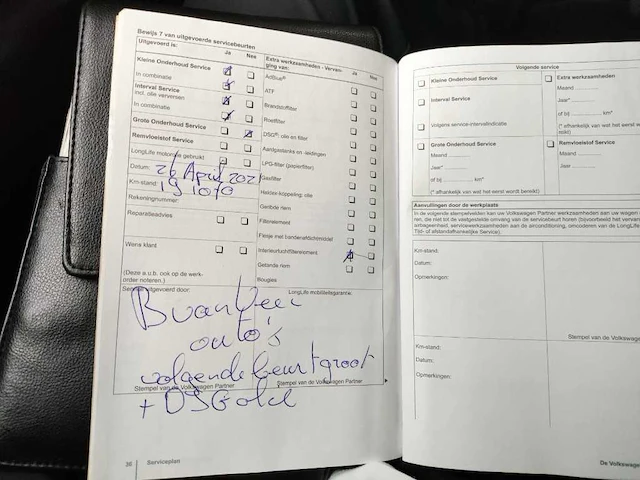 Bewijs 7 van uitgevoerde servicebeurten
Uitgevoerd is: Ja Nee
Kleine Onderhoud Service
In combinatie
Interval Service
incl. olie verversen
In combinatie
Grote Onderhoud Service
Remvloeistof Service
LongLife motorolie gebruikt
Datum: 26 April 202
Km-stand: 191070
Rekeningnummer:
Reparatieadvies
Wens klant
(Deze a.u.b. ook op de werk-
order noteren.)
Extra werkzaamheden - Vervan-
ging van: Ja Nee
AdBlue®
ATF
Brandstoffilter
Roetfilter
DSG®: olie en filter
Aardgastanks en -leidingen
LPG-filter (papierfilter)
Gasfilter
Haldex-koppeling: olie
Getande riem
Filterelement
Flesje met bandenafdichtmiddel
Interieurluchtfilterelement
Getande riem
Bougies
Service uitgevoerd door:
LongLife mobiliteitsgarantie:
B van
auto's
volgende beurt groot
Stempel van de Volkswagen Partner
Stempel van de Volkswagen Partner
+ DSG olie
36 Serviceplan
Volgende service
Kleine Onderhoud Service
Interval Service
Volgens service-intervalindicatie
Extra werkzaamheden
Maand
Jaar*
of bij km*
(* afhankelijk van wat het eerst
Grote Onderhoud Service
Maand
Jaar*
of bij km*
(* afhankelijk van wat het eerst wordt bereikt)
Remvloeistof Service
Maand
Jaar
Aanvullingen door de werkplaats
In de volgende stempelvelden kan uw Volkswagen Partner werkzaamheden aan uw wagen
Km-stand:
Datum:
Opmerkingen:
Stempel van de Volkswagen
Km-stand:
Datum:
Opmerkingen:
Stempel van de Volkswage
De Volkswage